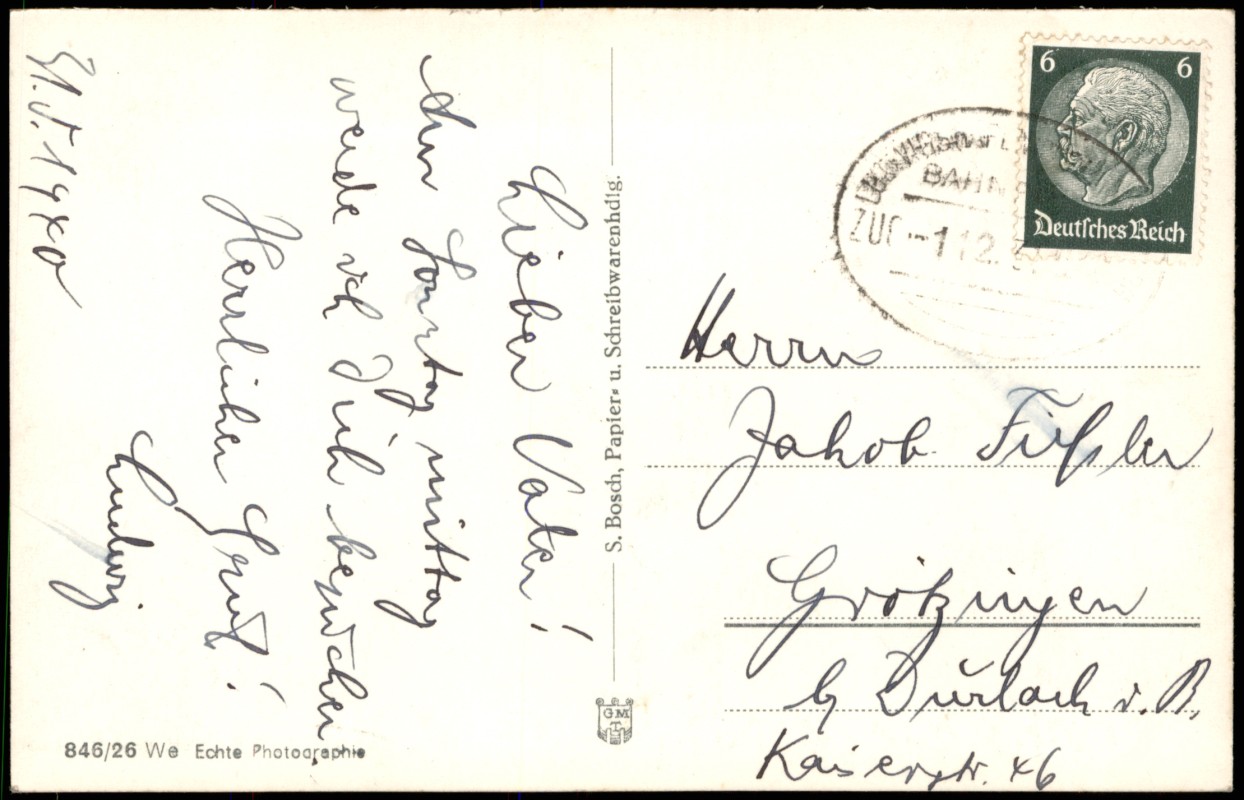 31.V.1940
Lieber Vater!
Am Sonntag mittag
werde ich Dich besuchen.
Herzlichen Gruß!
Ludwig.
846/26 We Echte Photographie
S. Bosch, Papier- u. Schreibwarenhdlg.
GMT
6 6
Deutsches Reich
BAHN
ZUG 112
Herrn
Jakob Füßler
Grötzingen
b/ Durlach i. B.
Kaiserstr. 46